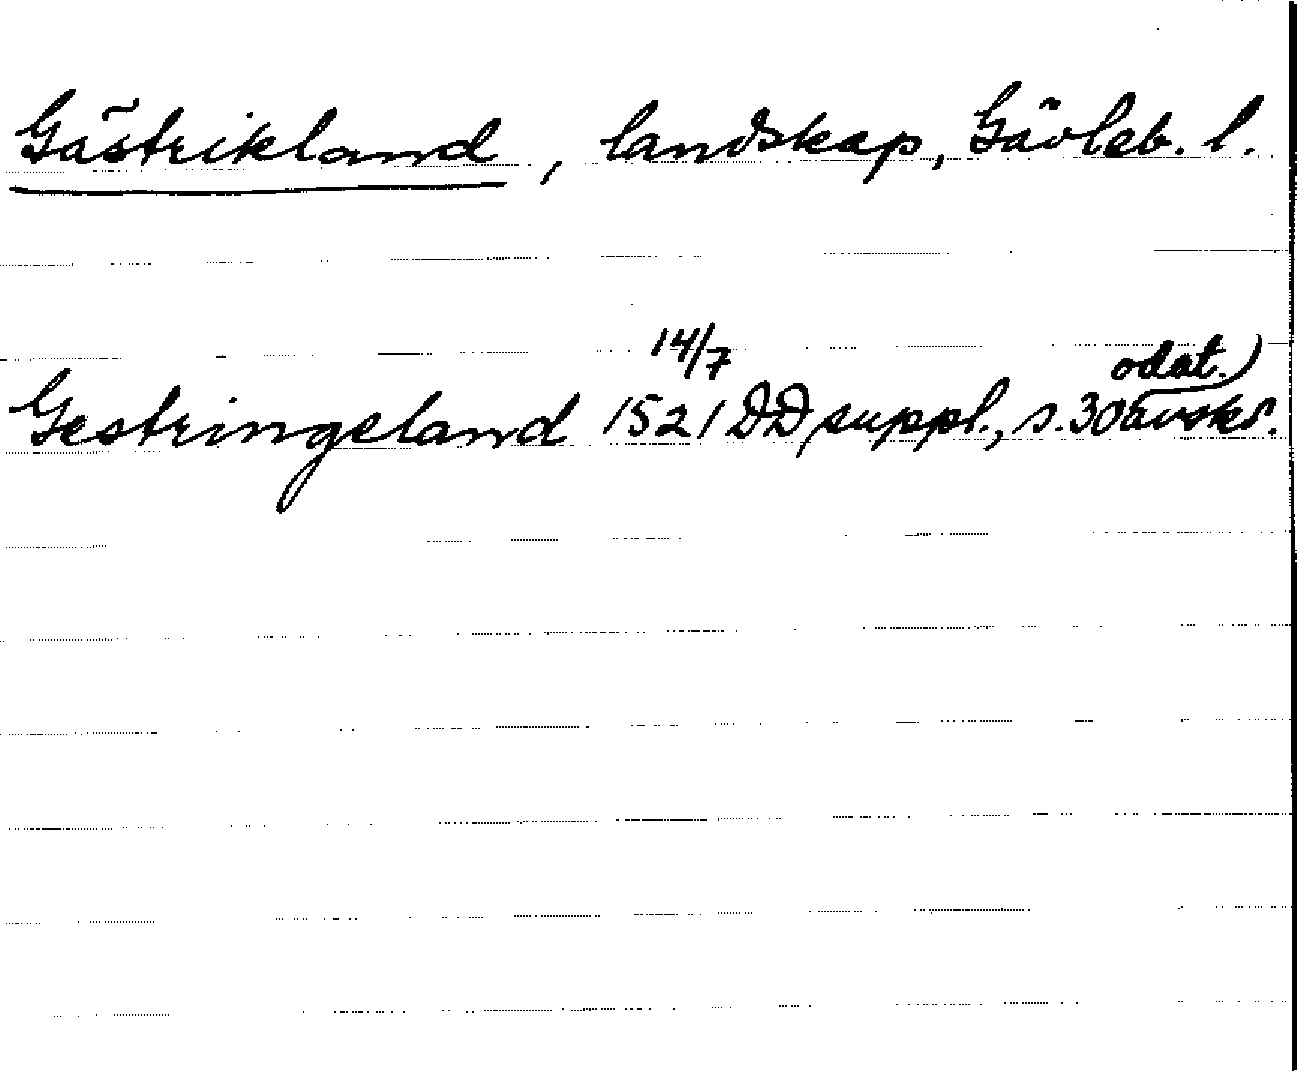 Gästrikland, landskap, Gävleb. l.
Gestringeland 14/7 1521 DD, suppl., s. 30 odat. avskr.